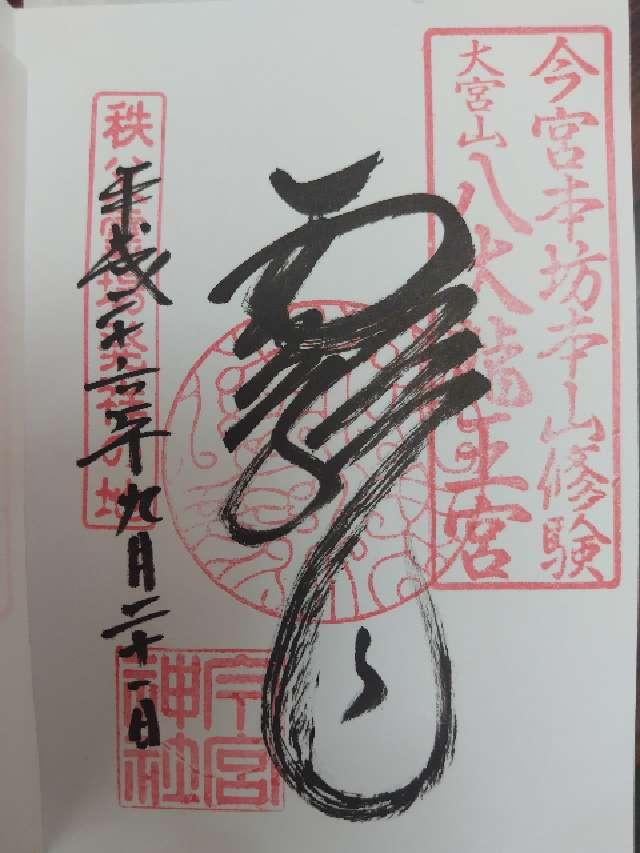 今宮本坊本山修験
大宮山八大龍王宮
龍
秩父霊場発祥の地
平成二十六年九月二十一日
今宮
神社